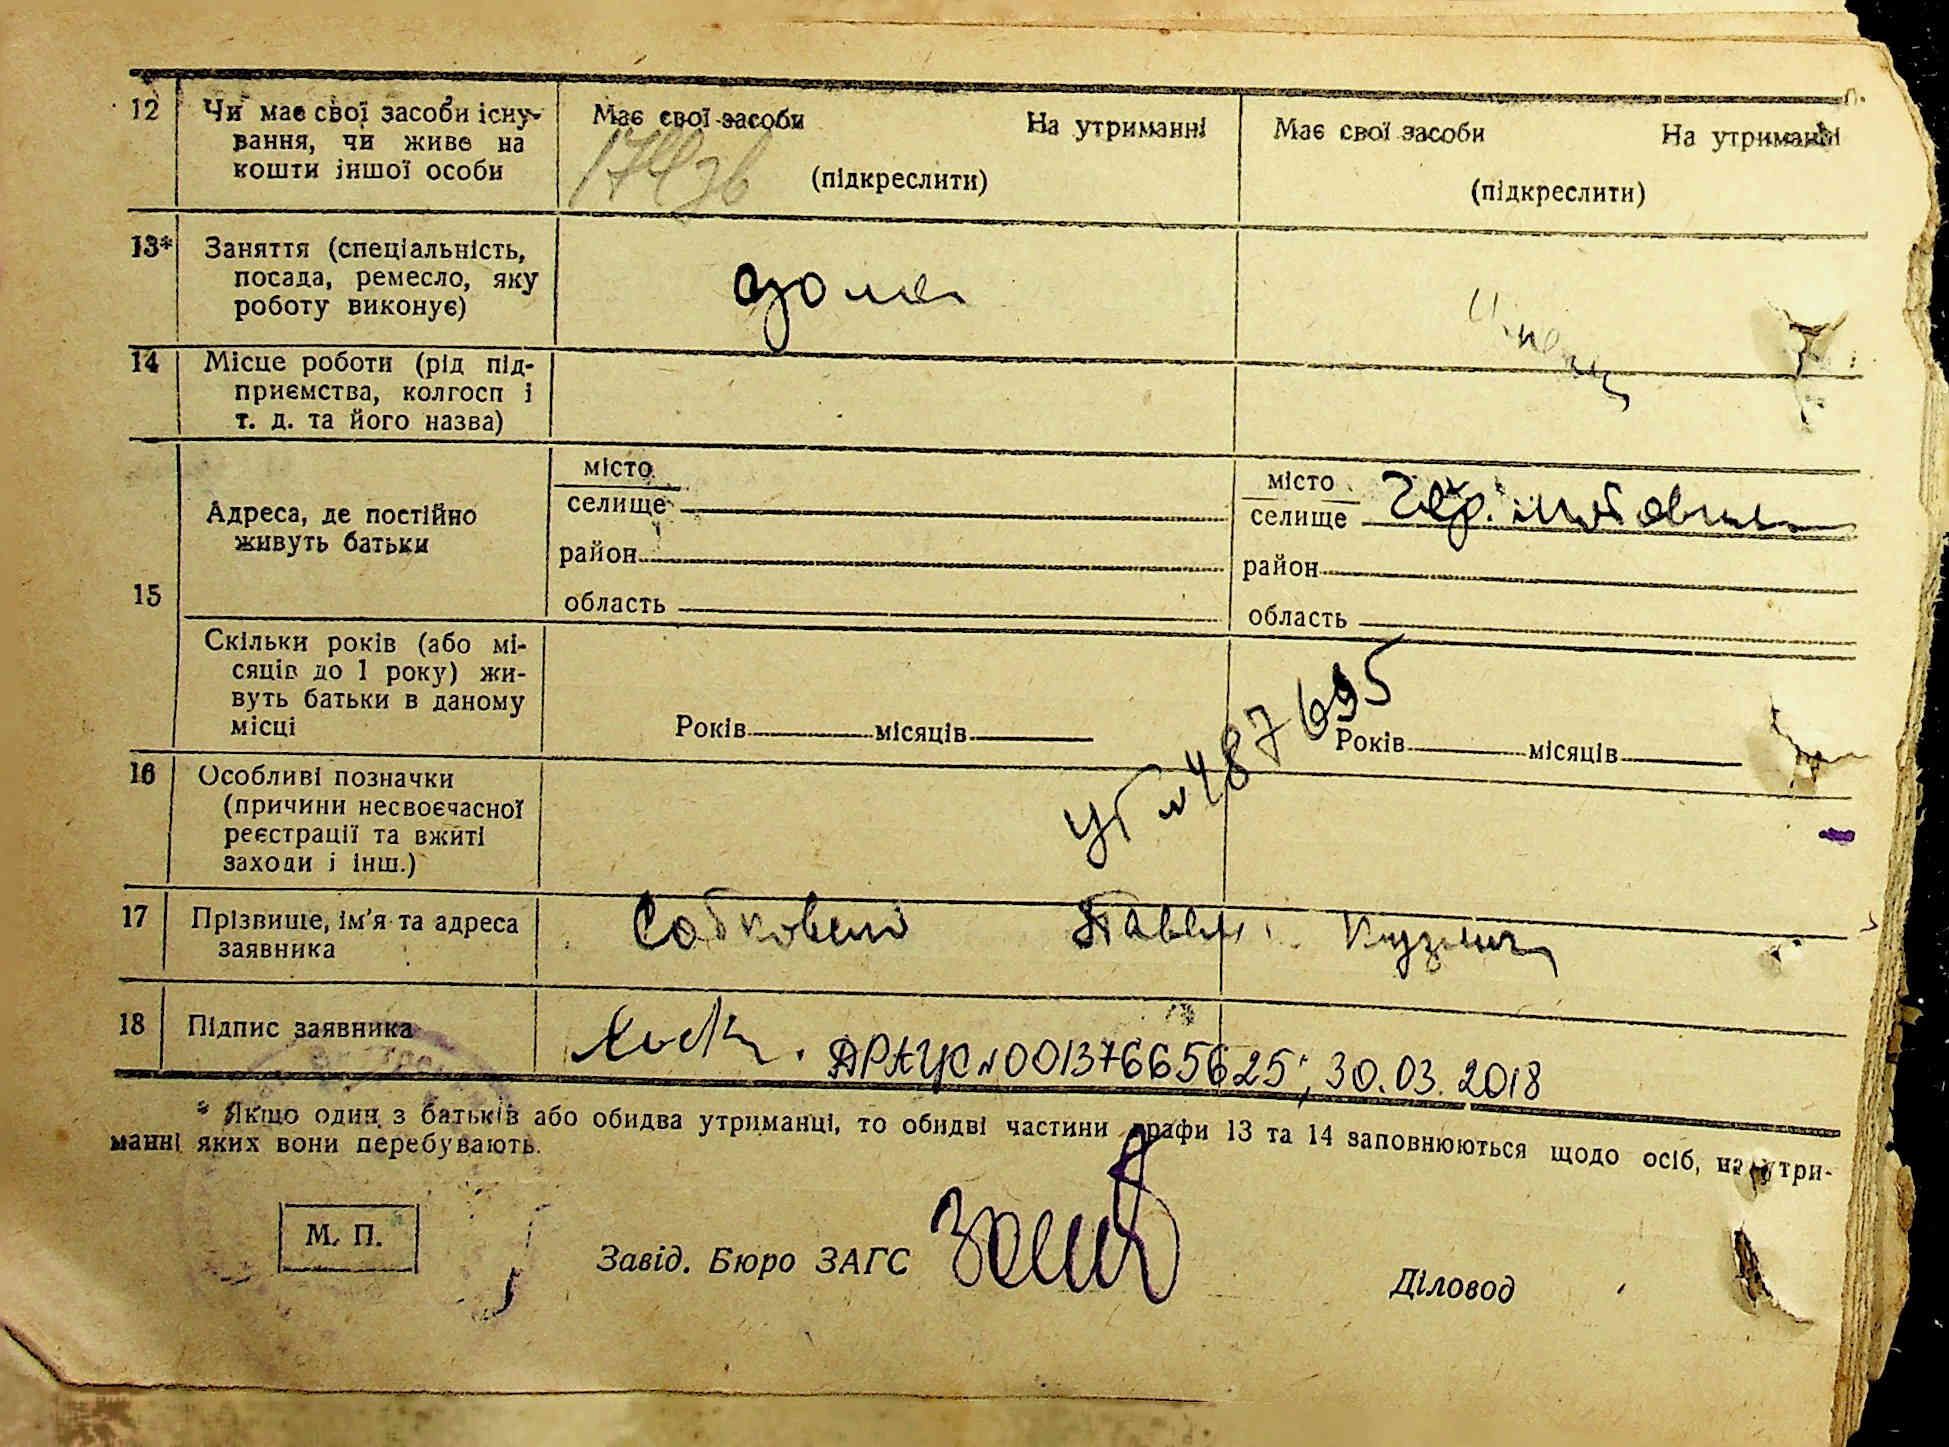 12 Чи має свої засоби існу-
вання, чи живе на
кошти іншої особи
Має свої засоби На утриманні
(підкреслити)
Має свої засоби На утриманні
(підкреслити)
13* Заняття (спеціальність,
посада, ремесло, яку
роботу виконує)
14 Місце роботи (рід під-
приємства, колгосп і
т. д. та його назва)
15
Адреса, де постійно
живуть батьки
місто
селище
район
область
місто
селище
район
область
Скільки років (або мі-
сяців до 1 року) жи-
вуть батьки в даному
місці
Років місяців
Років місяців
УГ № 487695
16 Особливі позначки
(причини несвоєчасної
реєстрації та вжиті
заходи і інш.)
17 Прізвище, ім'я та адреса
заявника
Кузьмич
18 Підпис заявника
ДРАЦС № 00137665625; 30.03.2018
* Якщо один з батьків або обидва утриманці, то обидві частини графи 13 та 14 заповнюються щодо осіб, на утри-
манні яких вони перебувають.
М. П.
Завід. Бюро ЗАГС
Діловод